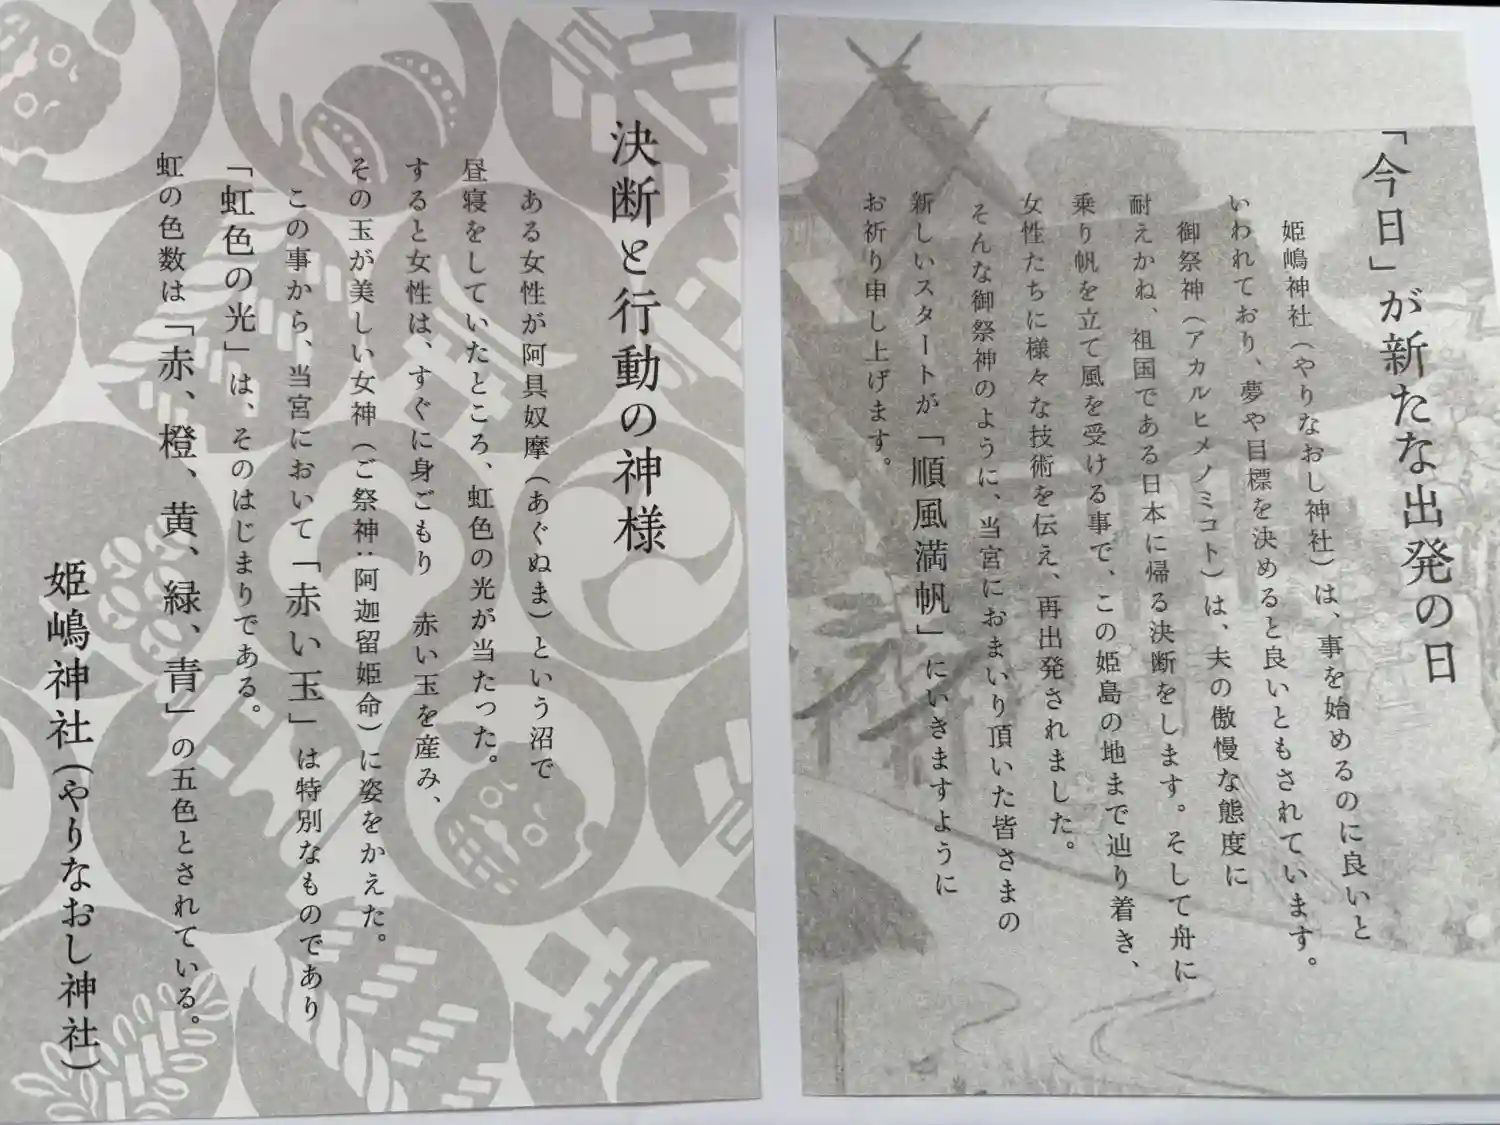 「今日」が新たな出発の日
姫嶋神社（やりなおし神社）は、事を始めるのに良いと
いわれており、夢や目標を決めると良いともされています。
御祭神（アカルヒメノミコト）は、夫の傲慢な態度に
耐えかね、祖国である日本に帰る決断をします。そして舟に
乗り帆を立て風を受ける事で、この姫島の地まで辿り着き、
女性たちに様々な技術を伝え、再出発されました。
そんな御祭神のように、当宮におまいり頂いた皆さまの
新しいスタートが「順風満帆」にいきますように
お祈り申し上げます。
決断と行動の神様
ある女性が阿具奴摩（あぐぬま）という沼で
昼寝をしていたところ、虹色の光が当たった。
すると女性は、すぐに身ごもり 赤い玉を産み、
その玉が美しい女神（ご祭神：阿迦留姫命）に姿をかえた。
この事から、当宮において「赤い玉」は特別なものであり
「虹色の光」は、そのはじまりである。
虹の色数は「赤、橙、黄、緑、青」の五色とされている。
姫嶋神社（やりなおし神社）